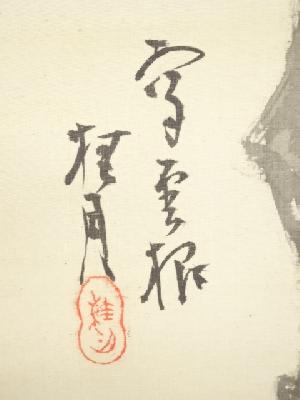 寫雲根
桂月
桂月